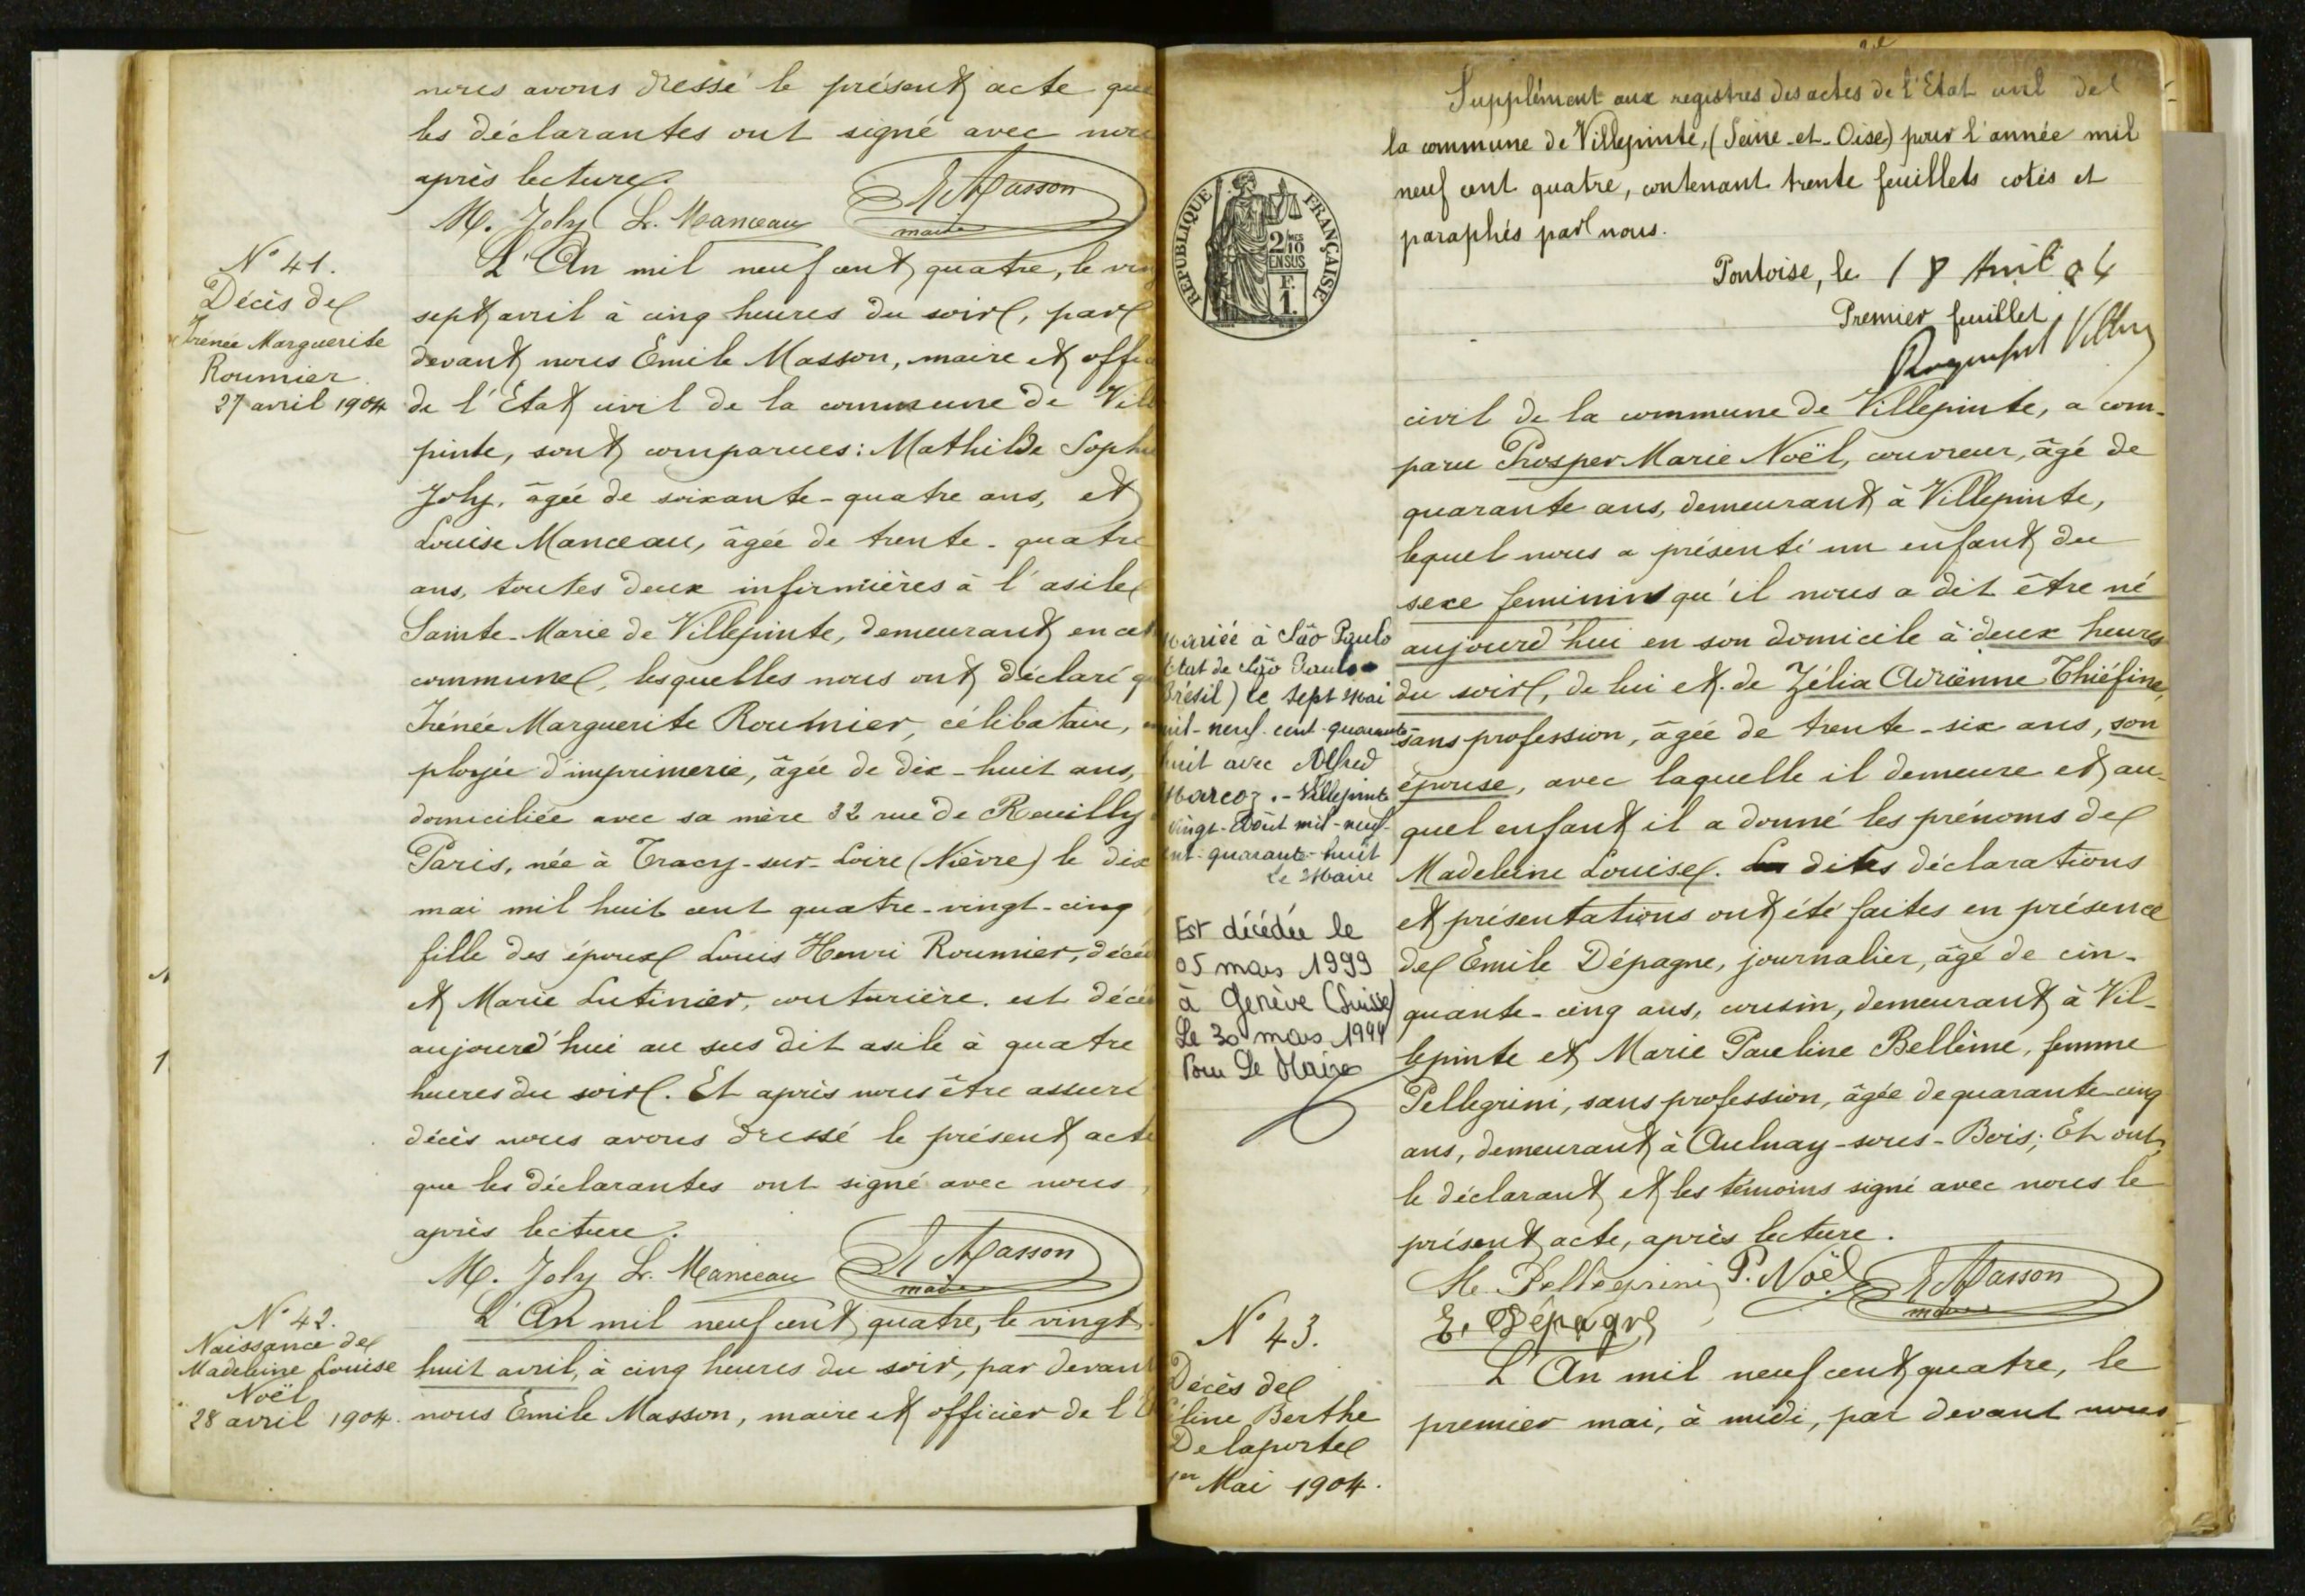 nous avons dressé le présent acte que
les déclarantes ont signé avec nous
après lecture.
M. Joly L. Manceau E Masson
maire
N° 41.
Décès de
Irénée Marguerite
Roumier
27 avril 1904
L'An mil neuf cent quatre, le vingt
sept avril à cinq heures du soir, par
devant nous Emile Masson, maire et offi
de l'Etat civil de la commune de Ville
pinte, sont comparues: Mathilde Sophie
Joly, âgée de soixante-quatre ans, et
Louise Manceau, âgée de trente-quatre
ans, toutes deux infirmières à l'asile
Sainte-Marie de Villepinte, demeurant en cet
commune, lesquelles nous ont déclaré q
Irénée Marguerite Roumier, célibataire, em
ployée d'imprimerie, âgée de dix-huit ans,
domiciliée avec sa mère 32 rue de Reuilly
Paris, née à Tracy-sur-Loire (Nièvre) le dix
mai mil huit cent quatre-vingt-cinq
fille des époux Louis Henri Roumier, décé
et Marie Lutinier, couturière. est décé
aujourd'hui au sus dit asile à quatre
heures du soir. Et après nous être assuré
décès nous avons dressé le présent acte
que les déclarantes ont signé avec nous,
après lecture.
M. Joly L. Manceau E Masson
maire
N° 42.
Naissance de
Madeleine Louise
Noël
28 avril 1904.
L'An mil neuf cent quatre, le vingt
huit avril, à cinq heures du soir, par devant
nous Emile Masson, maire et officier de l'E
Supplément aux registres des actes de l'Etat civil de
la commune de Villepinte, (Seine-et-Oise) pour l'année mil
neuf cent quatre, contenant trente feuillets cotés et
paraphés par nous.
Pontoise, le 18 Avril 04
Premier feuillet,
RÉPUBLIQUE FRANÇAISE
2/10 MES
EN SUS
F.
1.
civil de la commune de Villepinte, a com-
paru Prosper Marie Noël, couvreur, âgé de
quarante ans, demeurant à Villepinte,
lequel nous a présenté un enfant du
sexe feminin qu'il nous a dit être né
aujourd'hui en son domicile à deux heures
du soir, de lui et de Zélia Adrienne Thiéfine,
sans profession, âgée de trente-six ans, son
épouse, avec laquelle il demeure et au-
quel enfant il a donné les prénoms de
Madeleine Louise. Les dites déclarations
et présentations ont été faites en présence
de Emile Dépagne, journalier, âgé de cin-
quante-cinq ans, cousin, demeurant à Vil-
lepinte et Marie Pauline Bellême, femme
Pellegrini, sans profession, âgée de quarante-cinq
ans, demeurant à Aulnay-sous-Bois; Et ont
le déclarant et les témoins signé avec nous le
présent acte, après lecture.
Me Pellegrini P. Noël E Masson
maire
E. Dépagne
Mariée à São Paulo
Etat de São Paulo
Brésil) le sept Mai
mil-neuf-cent-quarante-
huit avec Alfred
Marcoz.- Villepinte
vingt-Août mil-neuf-
ent-quarante-huit
Le Maire
Est décédée le
05 mars 1999
à Genève (Suisse)
Le 30 mars 1999
Pour Le Maire
N° 43.
Décès de
Céline Berthe
Delaporte
1er Mai 1904.
L'An mil neuf cent quatre, le
premier mai, à midi, par devant nous